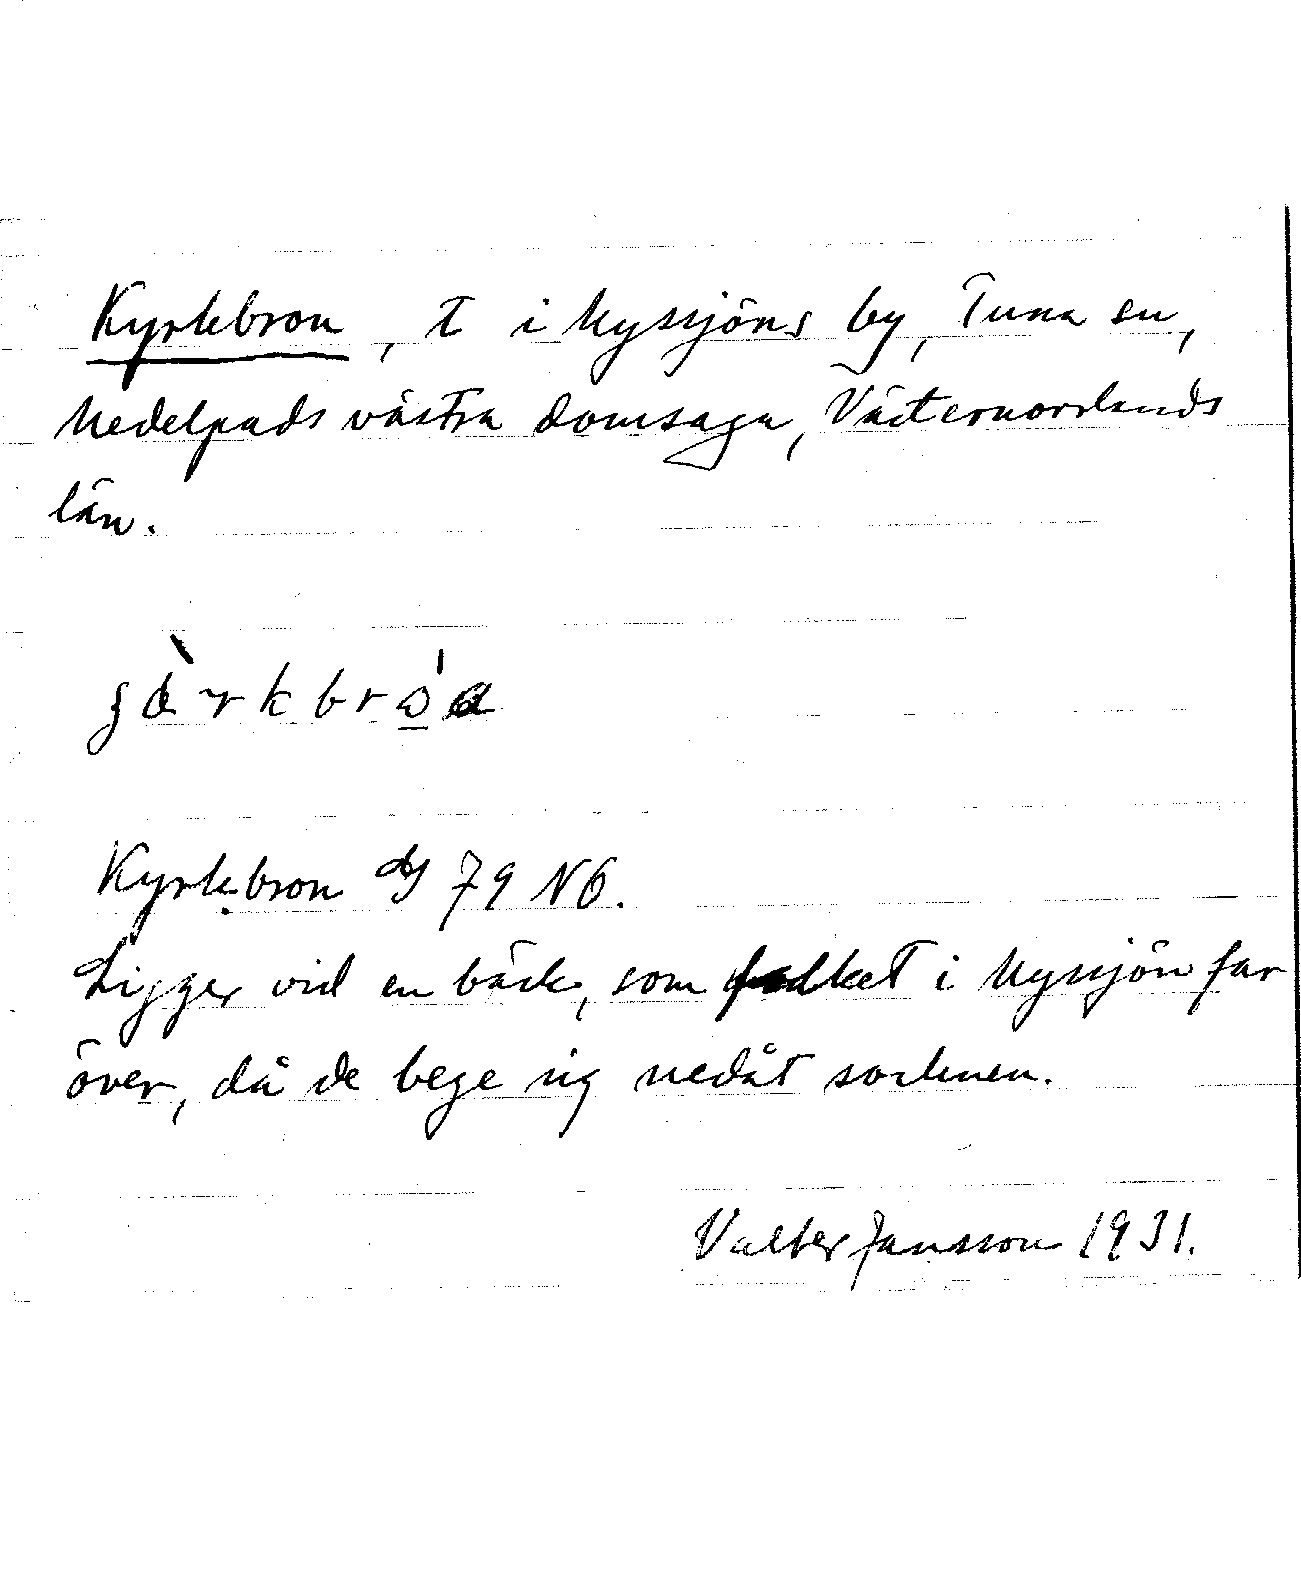 Kyrkbron, t i Nysjöns by, Tuna sn,
Medelpads västra domsaga, Västernorrlands
län.
Kyrkbron 79 NO.
Ligger vid en bäck, som folket i Nysjön far
över, då de bege sig nedåt socknen.
Valter Jansson 1931.